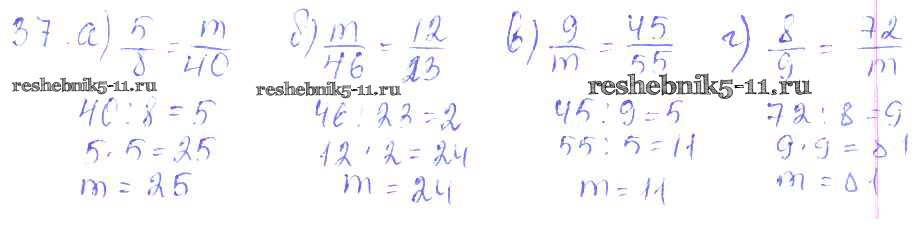 37. а) 5/8 = m/40 б) m/46 = 12/23 в) 9/m = 45/55 г) 8/9 = 72/m
reshebnik5-11.ru reshebnik5-11.ru reshebnik5-11.ru
40 : 8 = 5 46 : 23 = 2 45 : 9 = 5 72 : 8 = 9
5 · 5 = 25 12 · 2 = 24 55 : 5 = 11 9 · 9 = 81
m = 25 m = 24 m = 11 m = 81